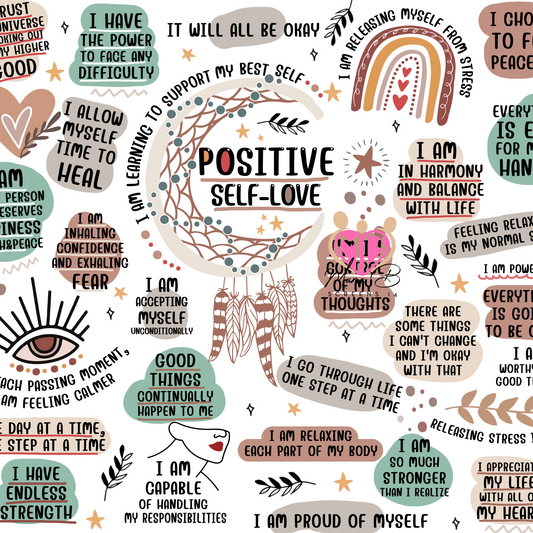 TRUST
UNIVERSE
LOOKING OUT
MY HIGHER
GOOD
I HAVE
THE POWER
TO FACE ANY
DIFFICULTY
IT WILL ALL BE OKAY
I AM RELEASING MYSELF FROM STRESS
I CHO
TO F
PEACE
I AM LEARNING TO SUPPORT MY BEST SELF
I ALLOW
MYSELF
TIME TO
HEAL
POSITIVE
SELF-LOVE
I AM
IN HARMONY
AND BALANCE
WITH LIFE
EVERY
IS
FOR M
HAN
AM
PERSON
DESERVES
PINESS
H&PEACE
I AM
INHALING
CONFIDENCE
AND EXHALING
FEAR
FEELING RELAX
IS MY NORMAL S
I AM POWE
OF MY
THOUGHTS
I AM
ACCEPTING
MYSELF
UNCONDITIONALLY
THERE ARE
SOME THINGS
I CAN'T CHANGE
AND I'M OKAY
WITH THAT
EVERYTH
IS GOI
TO BE
I A
WORTHY
GOOD T
EACH PASSING MOMENT,
I AM FEELING CALMER
GOOD
THINGS
CONTINUALLY
HAPPEN TO ME
I GO THROUGH LIFE
ONE STEP AT A TIME
E DAY AT A TIME,
E STEP AT A TIME
I AM RELAXING
EACH PART OF MY BODY
RELEASING STRESS
I HAVE
ENDLESS
STRENGTH
I AM
CAPABLE
OF HANDLING
MY RESPONSIBILITIES
I AM
SO MUCH
STRONGER
THAN I REALIZE
I APPRECIAT
MY LIFE
WITH ALL O
MY HEAR
I AM PROUD OF MYSELF